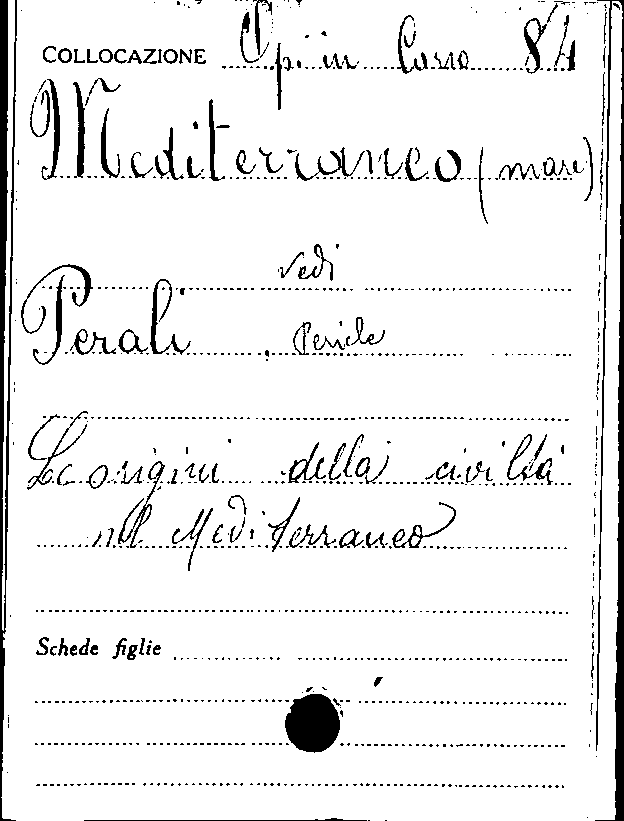 COLLOCAZIONE Op. in Corso 84
Mediterraneo (mare)
vedi
Perali, Pericle
Le origini della civiltà
nel Mediterraneo
Schede figlie